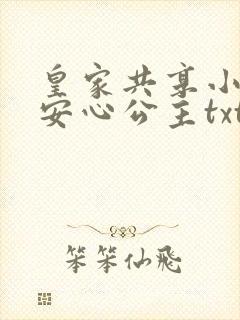 皇家共享小
安心公主txt
笨笨仙飛